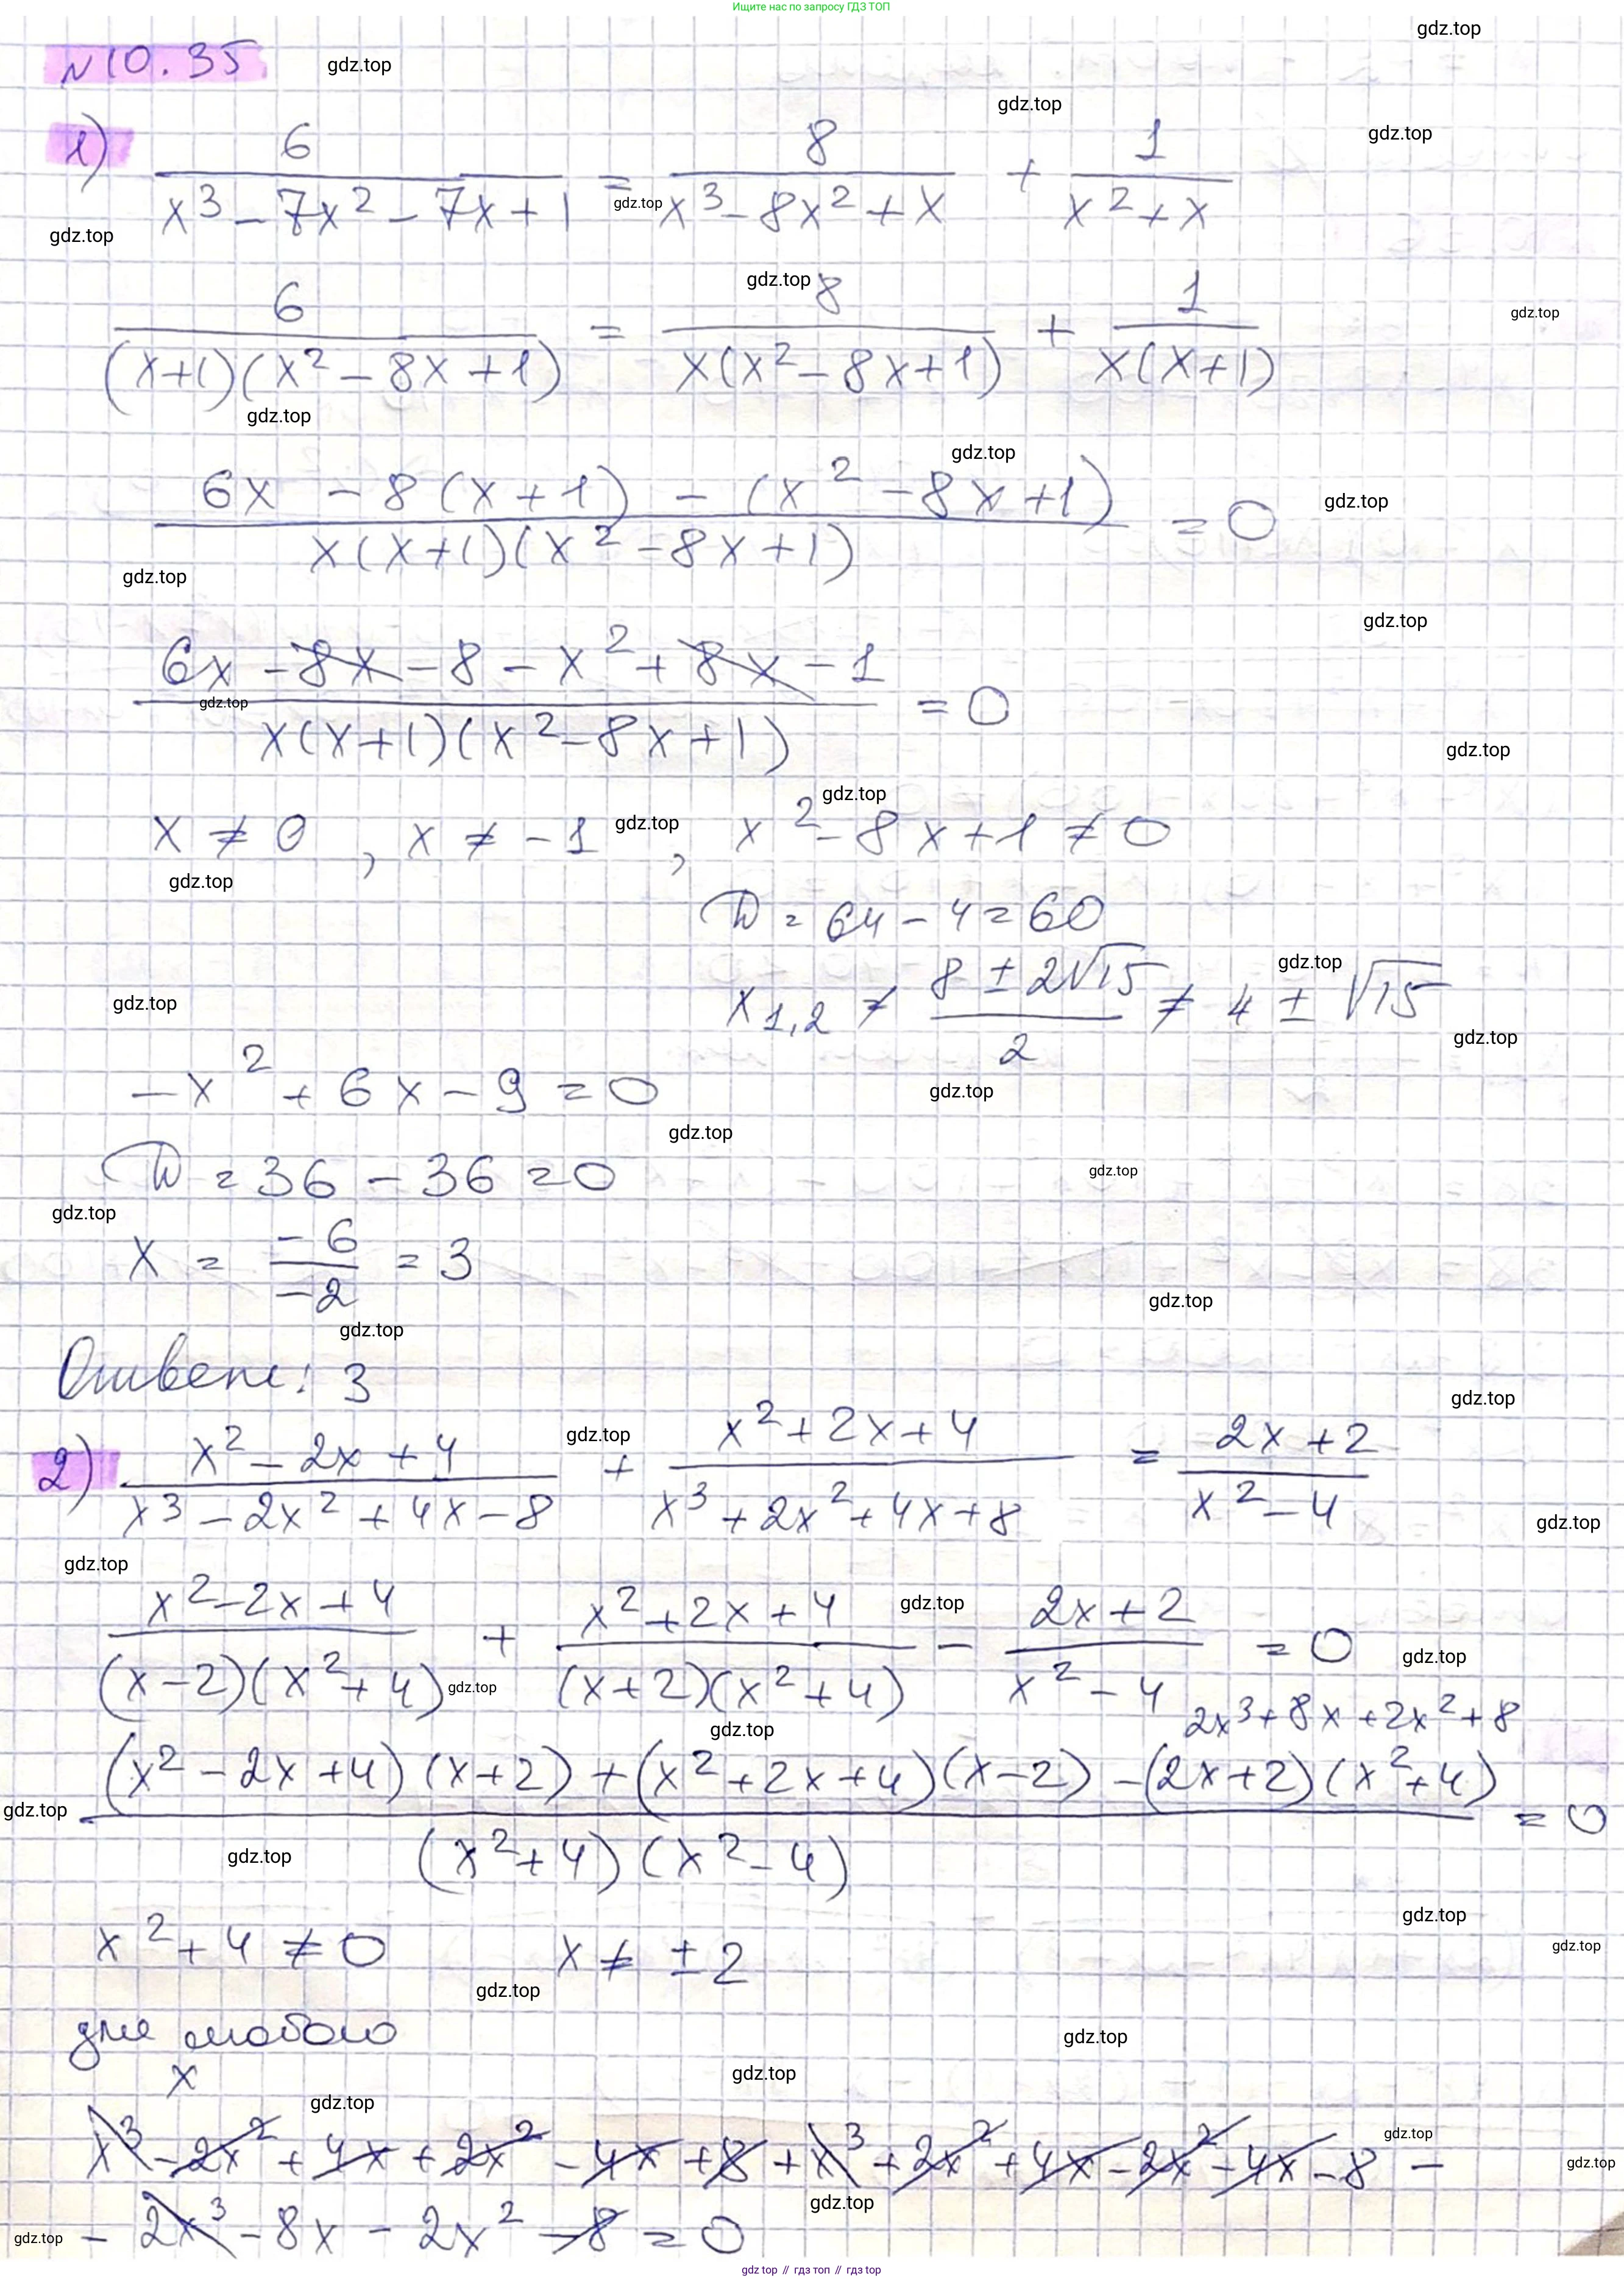 Ищите нас по запросу ГДЗ ТОП
gdz.top
N10.35 gdz.top
gdz.top
1) 6/(x³ - 7x² - 7x + 1) = 8/(x³ - 8x² + x) + 1/(x² + x) gdz.top
gdz.top gdz.top
gdz.top
6/((x+1)(x² - 8x + 1)) = 8/(x(x² - 8x + 1)) + 1/(x(x+1)) gdz.top
gdz.top
gdz.top
(6x - 8(x+1) - (x² - 8x + 1))/(x(x+1)(x² - 8x + 1)) = 0 gdz.top
gdz.top
gdz.top
(6x - 8x - 8 - x² + 8x - 1)/(x(x+1)(x² - 8x + 1)) = 0
gdz.top
gdz.top
gdz.top
x ≠ 0 , x ≠ -1 gdz.top , x² - 8x + 1 ≠ 0
gdz.top
D = 64 - 4 = 60
gdz.top
gdz.top x₁,₂ ≠ (8 ± 2√15)/2 ≠ 4 ± √15
gdz.top
-x² + 6x - 9 = 0 gdz.top
gdz.top
D = 36 - 36 = 0 gdz.top
gdz.top
x = -6/-2 = 3
gdz.top
gdz.top
Ответ: 3
gdz.top
2) (x² - 2x + 4)/(x³ - 2x² + 4x - 8) gdz.top + (x² + 2x + 4)/(x³ + 2x² + 4x + 8) = (2x + 2)/(x² - 4)
gdz.top
gdz.top
(x² - 2x + 4)/((x-2)(x² + 4)) + (x² + 2x + 4)/((x+2)(x² + 4)) gdz.top - (2x + 2)/(x² - 4) = 0 gdz.top
gdz.top
2x³ + 8x + 2x² + 8
gdz.top
((x² - 2x + 4)(x+2) + (x² + 2x + 4)(x-2) - (2x+2)(x² + 4))/((x² + 4)(x² - 4)) = 0
gdz.top
gdz.top
gdz.top
x² + 4 ≠ 0 x ≠ ±2 gdz.top
gdz.top
для любого gdz.top
x gdz.top
gdz.top
x³ - 2x² + 4x + 2x² - 4x + 8 + x³ + 2x² + 4x - 2x² - 4x - 8 - gdz.top
gdz.top
gdz.top
gdz.top - 2x³ - 8x - 2x² - 8 = 0
gdz top // гдз топ // gdz top